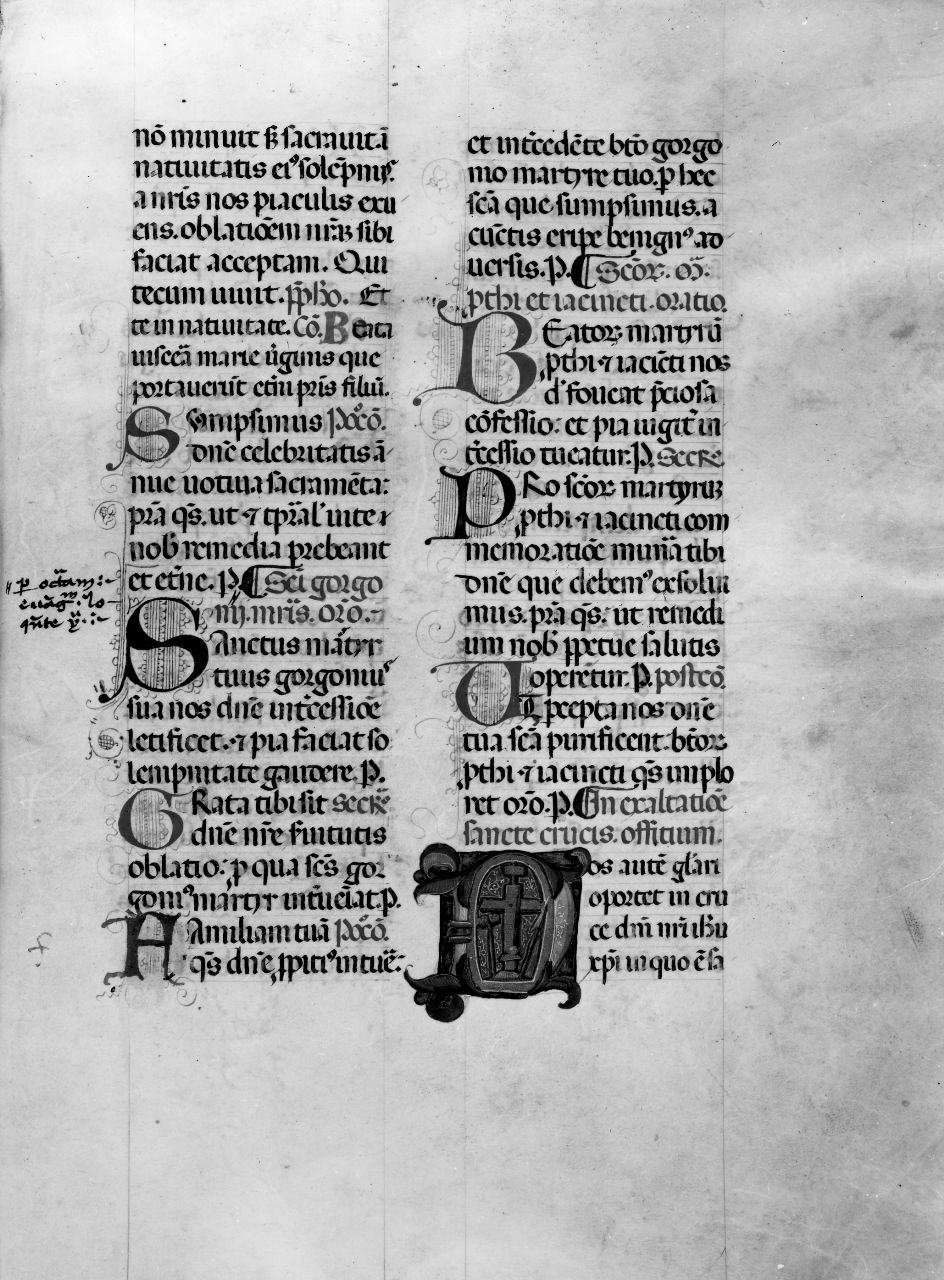 nō minuit sʒ sacrauit. ī
natiuitatis eiꝰ solēpniis.
a nr̄is nos piaculis exu
ens. oblatiōem nr̄aꝫ sibi
faciat acceptam. Qui
tecum uiuit. p̄pħo. Et
te in natiuitate. Cō. Beata
uiscēa marie ůginis que
portauerūt et̄ni pr̄is filiū.
Sumpsimus Poꝰcō.
dn̄e celebritatis ā
nue uotiua sacramēta:
pr̄a q̄s. ut ⁊ tp̄ral̓ uite ⁊
nob̓ remedia prebeant
et et̄ne. P. ¶ Sc̄i gorgo
nij. mr̄is. orō.
Sanctus mar̓tyr
tuus gorgoniuˢ
sua nos dn̄e int̓cessiōe
letificet. ⁊ pia faciat so
lempnitate gaudere. P.
Grata tibi sit secrē
dn̄e nr̄e s̓uitutis
oblatio: ꝑ qua sc̄s gor
goniꝰ martyr int̓ueīat. P.
Familiam tuā Poꝰcō.
q̄s dn̄e ꝓpitiꝰ intuē:
ꝑ octāam :~
euāg̃. ło
q̄nte ỹ. :~
et int̓cedēte btō gorgo
nio martyre tuo. ꝑ hec
sc̄a que sumpsimus. a
cūctis eripe benignꝰ ad
uersis. P. ¶ Scōꝝ. m̄.
ꝓthi et iacincti. oratio.
Beatoꝝ martyrū
ꝓthi ⁊ iacīcti nos
d̓ foueat p̄ciosa
cōfessio: et pia iugit̓ in
t̓cessio tueatur. P. Secrē
Pro scōꝝ martyruꝫ
ꝓthi ⁊ iacincti com
memoratiōe mun̓a tibi
dn̄e que debemꝰ exsolui
mus. pr̄a q̄s. ut remedi
um nob̓ ꝑpetue salutis
operetur. P. postcō.
Ut ꝑcepta nos dn̄e
tua sc̄a purificent. btōꝝ
ꝓthi ⁊ iacincti q̄s implo
ret orō. P. ¶ In exaltatiōe
sancte crucis. offitium.
Nos autē gl̄ari
oportet in cru
ce dn̄i nr̄i iħu
xp̄i in quo ē sa